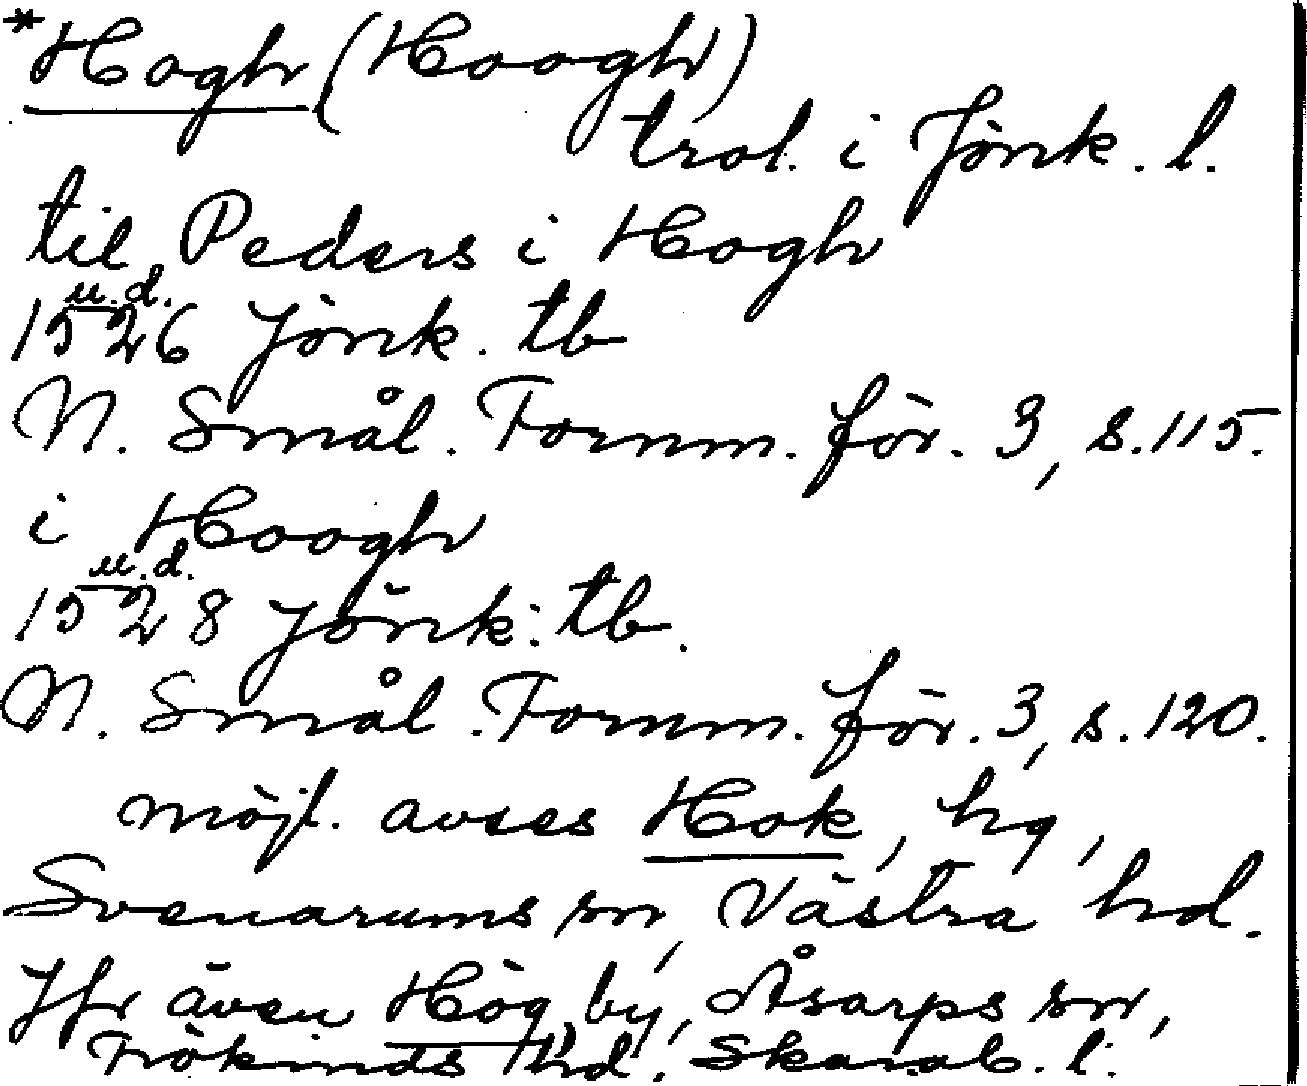 *Hogh (Hoogh)
trol. i Jönk. l.
til Peders i Hogh
u.d.
1526 Jönk. tb
N. Smål. Fornm. för. 3, s. 115.
i Hoogh
u.d.
1528 Jönk. tb.
N. Smål. Fornm. för. 3, s. 120.
möjl. avses Hok, hg,
Svenarums sn, Västra hd.
Jfr även Hög, by, Åsarps sn,
Frökinds hd, Skarab. l.